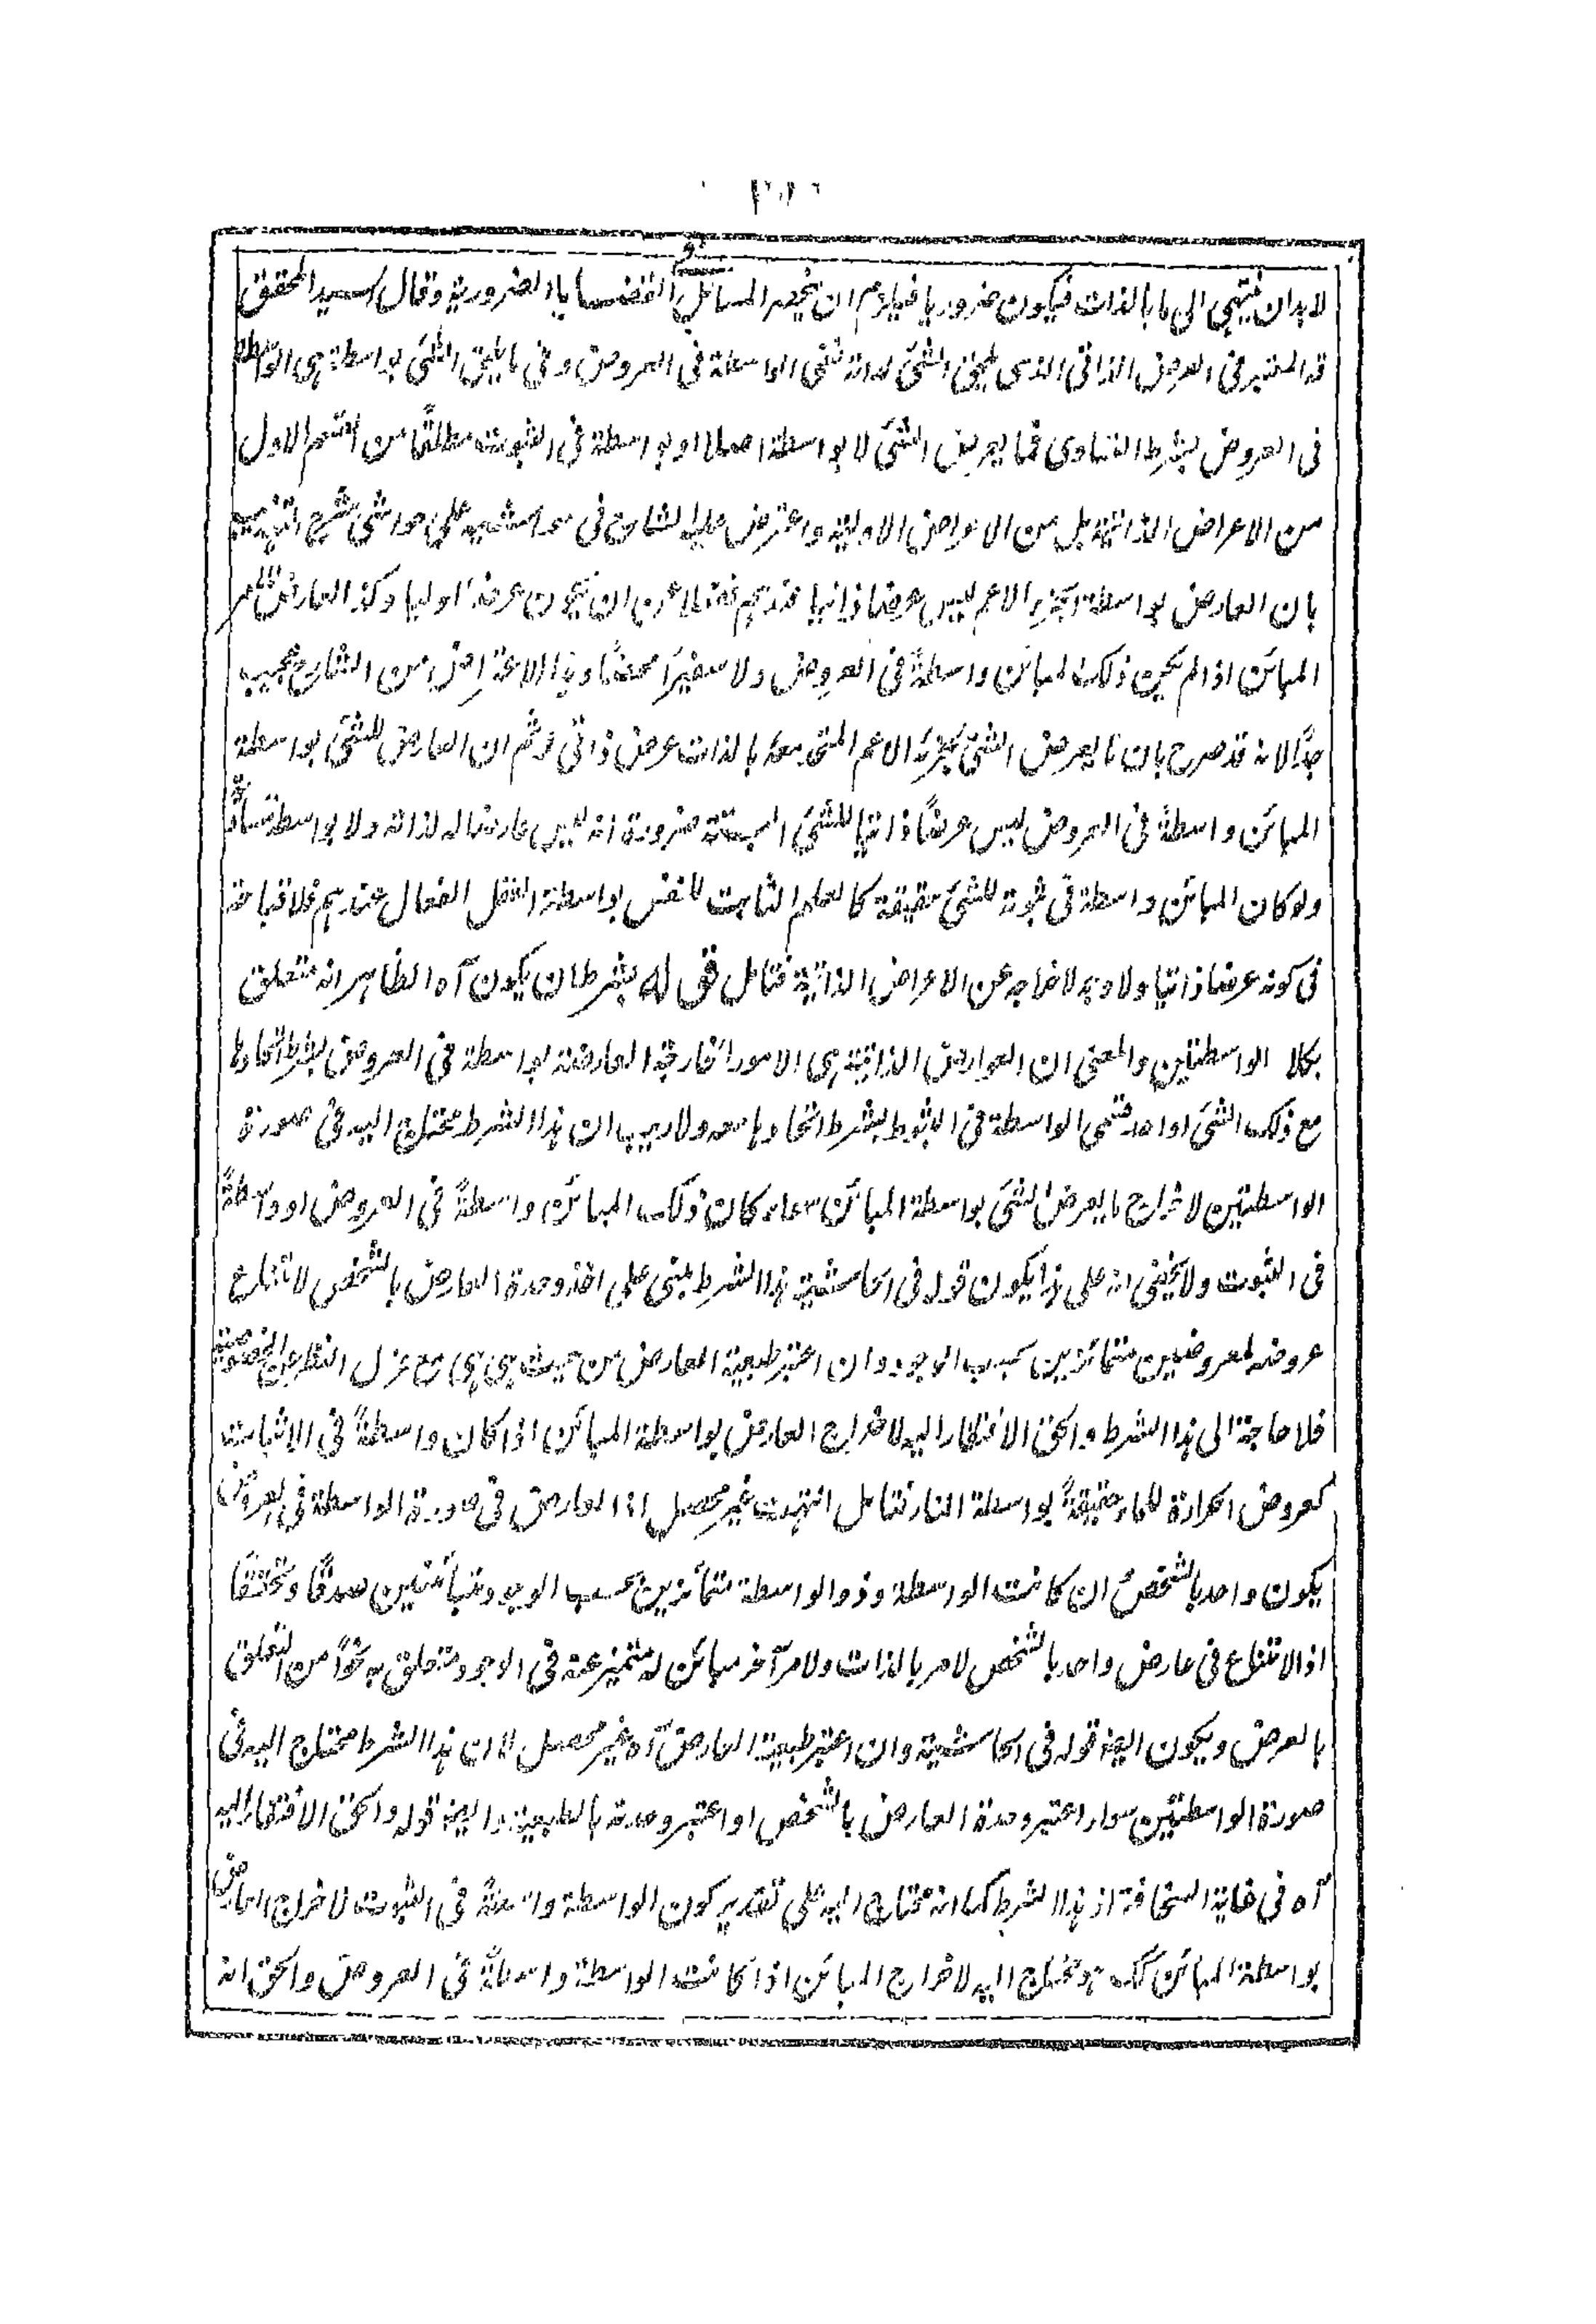 لا بد ان ينتهى الى ما بالذات فيكون ضروريا فيلزم ان ينحصر المسائل فى القضايا الضرورية وقال السيد المحقق
قد المعتبر فى العرض الذاتى الذى يلحق الشئ لذاته نفى الواسطة فى العروض وفى ما يلحق الشئ بواسطة هى الواسطة
فى العروض بشرط التساوى فما يعرض الشئ لا بواسطة اصلا او بواسطة فى الثبوت مطلقًا من القسم الاول
من الاعراض الذاتية بل من الاعراض الاولية واعترض عليه الشارح فى حاشيته على حواشى شرح التهذيب
بان العارض بواسطة الجزء الاعم ليس عرضا ذاتيا عندهم فضلا عن ان يكون عرضا اوليا وكذا العارض للامر
المبائن اذا لم يكن ذلك المبائن واسطةً فى العروض ولا سفيرًا محضًا وهذا الاعتراض من الشارح عجيب
جدًا لانه قد صرح بان ما يعرض الشئ بجزئه الاعم المتحد معه بالذات عرض ذاتى له ثم ان العارض للشئ بواسطة
المبائن واسطةً فى العروض ليس عرضًا ذاتيا للشئ البتة ضرورة انه ليس عارضا له لذاته ولا بواسطة تساويه
ولو كان المبائن واسطة فى ثبوته للشئ حقيقة كالعلم الثابت للنفس بواسطة العقل الفعال عندهم فلا قباحة
فى كونه عرضا ذاتيا ولا وجه لاخراجه عن الاعراض الذاتية فتامل قوله بشرط ان يكون آه الظاهر انه متعلق
بكلا الواسطتين والمعنى ان العوارض الذاتية هى الامور الخارجة العارضة بواسطة فى العروض بشرط اتحادها
مع ذلك الشئ او احد قسمى الواسطة فى الثبوت بشرط اتحادها معه ولا ريب ان هذا الشرط محتاج اليه فى صورة
الواسطتين لاخراج ما يعرض الشئ بواسطة المبائن سواء كان ذلك المبائن واسطةً فى العروض او واسطةً
فى الثبوت ولا يخفى انه على هذا يكون قوله فى الحاشية هذا الشرط مبنى على اخذ وحدة العارض بالشخص لامتناع
عروضه لمعروضين متمائزين بحسب الوجود وان اعتبر طبيعة العارض من حيث هى هى مع عزل النظر عن الخصوصية
فلا حاجة الى هذا الشرط والحق الافتقار اليه لاخراج العارض بواسطة المبائن اذا كان واسطةً فى الاثبات
كعروض الحرارة للماء حقيقةً بواسطة النار فتامل انتهت غير محصل اذ العارض فى صورة الواسطة فى العروض
يكون واحد بالشخص ان كانت الواسطة وذو الواسطة متمائزين بحسب الوجود متبائنين صدقًا وتحققًا
اذ لا امتناع فى عارض واحد بالشخص لامر بالذات ولامر آخر مبائن له متميز عنه فى الوجود متعلق به نحوًا من التعلق
بالعرض ويكون ايضا قوله فى الحاشية وان اعتبر طبيعة العارض آه غير محصل لان هذا الشرط محتاج اليه فى
صورة الواسطتين سواء اعتبر وحدة العارض بالشخص او اعتبر وحدته بالطبيعة وايضا قوله والحق الافتقار اليه
آه فى غاية السخافة اذ هذا الشرط كما انه محتاج اليه على تقدير كون الواسطة واسطةً فى الثبوت لاخراج العارض
بواسطة المبائن كك يحتاج اليه لاخراج المبائن اذا كانت الواسطة واسطةً فى العروض والحق انه